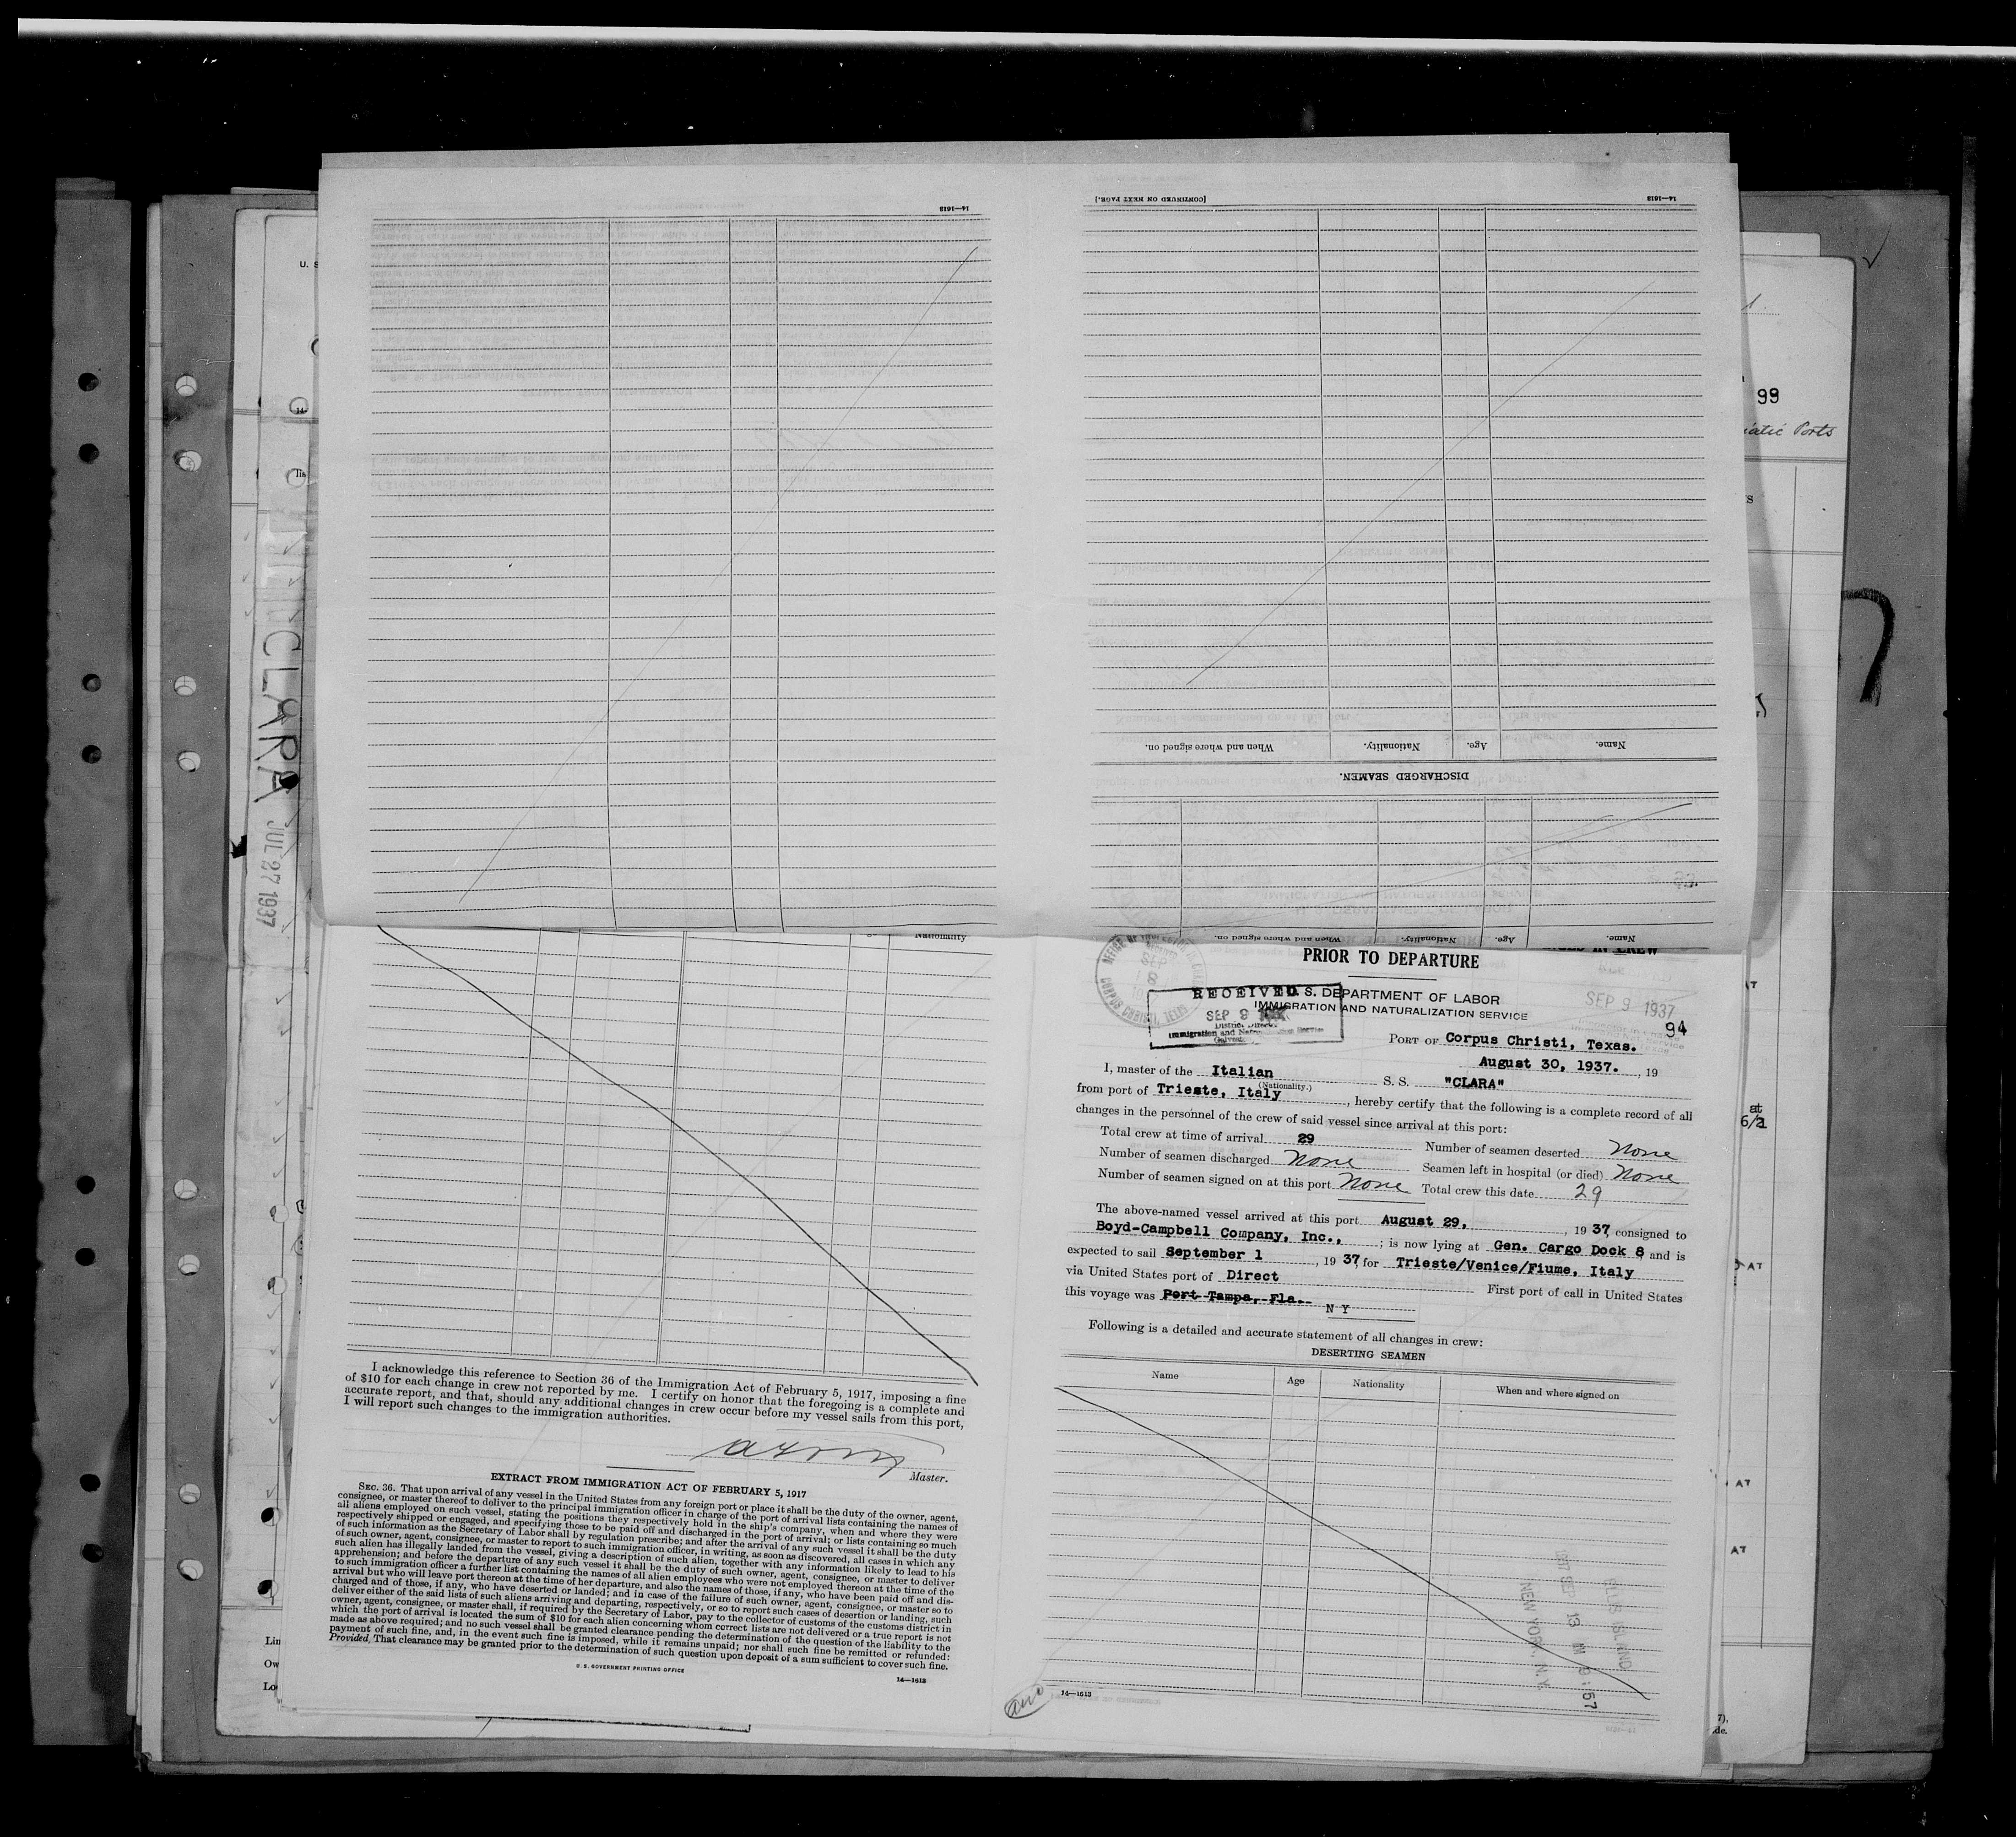 14—1613
[CONTINUED ON NEXT PAGE.]
14—1613
Name.
Age.
Nationality.
When and where signed on.
DISCHARGED SEAMEN.
Name.
Age.
Nationality.
When and where signed on.
U. S
CLARA
JUL 27 1937
99
Ports
at
6/2
AT
AT
AT
Lin
Ow
Lo
7),
de.
Nationality
I acknowledge this reference to Section 36 of the Immigration Act of February 5, 1917, imposing a fine
of $10 for each change in crew not reported by me. I certify on honor that the foregoing is a complete and
accurate report, and that, should any additional changes in crew occur before my vessel sails from this port,
I will report such changes to the immigration authorities.
Master.
EXTRACT FROM IMMIGRATION ACT OF FEBRUARY 5, 1917
SEC. 36. That upon arrival of any vessel in the United States from any foreign port or place it shall be the duty of the owner, agent,
consignee, or master thereof to deliver to the principal immigration officer in charge of the port of arrival lists containing the names of
all aliens employed on such vessel, stating the positions they respectively hold in the ship's company, when and where they were
respectively shipped or engaged, and specifying those to be paid off and discharged in the port of arrival; or lists containing so much
of such information as the Secretary of Labor shall by regulation prescribe; and after the arrival of any such vessel it shall be the duty
of such owner, agent, consignee, or master to report to such immigration officer, in writing, as soon as discovered, all cases in which any
such alien has illegally landed from the vessel, giving a description of such alien, together with any information likely to lead to his
apprehension; and before the departure of any such vessel it shall be the duty of such owner, agent, consignee, or master to deliver
to such immigration officer a further list containing the names of all alien employees who were not employed thereon at the time of the
arrival but who will leave port thereon at the time of her departure, and also the names of those, if any, who have been paid off and dis-
charged and of those, if any, who have deserted or landed; and in case of the failure of such owner, agent, consignee, or master so to
deliver either of the said lists of such aliens arriving and departing, respectively, or so to report such cases of desertion or landing, such
owner, agent, consignee, or master shall, if required by the Secretary of Labor, pay to the collector of customs of the customs district in
which the port of arrival is located the sum of $10 for each alien concerning whom correct lists are not delivered or a true report is not
made as above required; and no such vessel shall be granted clearance pending the determination of the question of the liability to the
payment of such fine, and, in the event such fine is imposed, while it remains unpaid; nor shall such fine be remitted or refunded:
Provided, That clearance may be granted prior to the determination of such question upon deposit of a sum sufficient to cover such fine.
U. S. GOVERNMENT PRINTING OFFICE
14—1613
PRIOR TO DEPARTURE
CORPUS CHRISTI, TEXAS
SEP 8
RECEIVED
SEP 9
District Director
Immigration and Naturalization Service
U. S. DEPARTMENT OF LABOR
IMMIGRATION AND NATURALIZATION SERVICE
SEP 9 1937
94
PORT OF Corpus Christi, Texas.
August 30, 1937. , 19
I, master of the Italian S. S. "CLARA"
(Nationality.)
from port of Trieste, Italy , hereby certify that the following is a complete record of all
changes in the personnel of the crew of said vessel since arrival at this port:
Total crew at time of arrival 29 Number of seamen deserted None
Number of seamen discharged None Seamen left in hospital (or died) None
Number of seamen signed on at this port None Total crew this date 29
The above-named vessel arrived at this port August 29, , 19 37, consigned to
Boyd-Campbell Company, Inc., ; is now lying at Gen. Cargo Dock 8 and is
expected to sail September 1 , 19 37, for Trieste/Venice/Fiume, Italy
via United States port of Direct First port of call in United States
this voyage was Port Tampa, Fla.
N Y
Following is a detailed and accurate statement of all changes in crew:
DESERTING SEAMEN
Name Age Nationality When and where signed on
ELLIS ISLAND
1937 SEP 13 AM 9:57
NEW YORK, N.Y.
14—1613